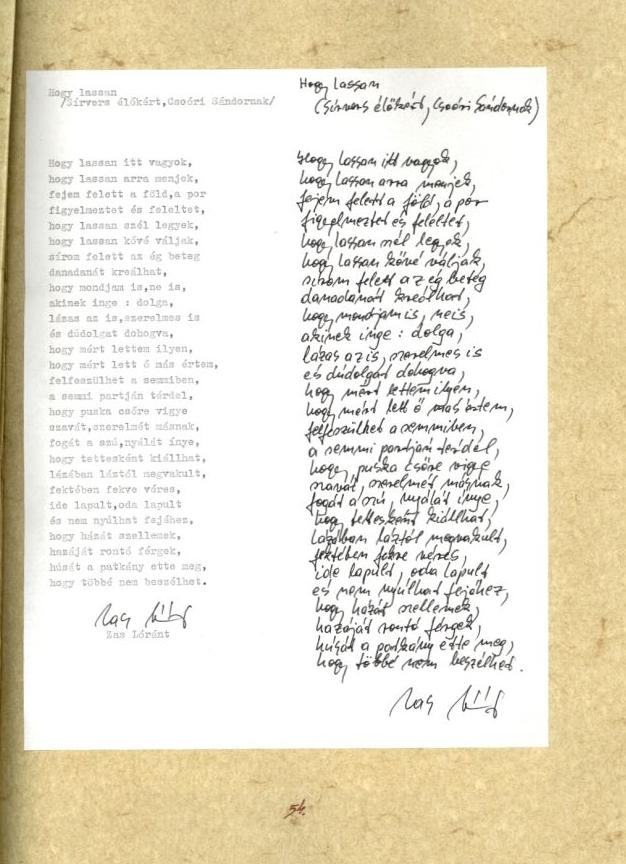 Hogy lassan
/Sirvers élőkért,Csoóri Sándornak/
Hogy lassan itt vagyok,
hogy lassan arra menjek,
fejem felett a föld,a por
figyelmeztet és feleltet,
hogy lassan szél legyek,
hogy lassan kővé váljak,
sírom felett az ég beteg
danadanát kreálhat,
hogy mondjam is,ne is,
akinek inge : dolga,
lázas az is,szerelmes is
és dúdolgat dohogva,
hogy mért lettem ilyen,
hogy mért lett ő más értem,
felfeszülhet a semmiben,
a semmi partján térdel,
hogy puska csőre vigye
szavát,szerelmét másnak,
fogát a szú,nyálát ínye,
hogy tettesként kiállhat,
lázában láztól megvakult,
fektében fekve véres,
ide lapult,oda lapult
és nem nyúlhat fejéhez,
hogy házát szellemek,
hazáját rontó férgek,
húsát a patkány ette meg,
hogy többé nem beszélhet.
Zas Lóránt
Zas Lóránt
Hogy lassan
(Sirvers élőkért, Csoóri Sándornak)
Hogy lassan itt vagyok,
hogy lassan arra menjek,
fejem felett a föld, a por
figyelmeztet és feleltet,
hogy lassan szél legyek,
hogy lassan kővé váljak,
sírom felett az ég beteg
danadanát kreálhat,
hogy mondjam is, ne is,
akinek inge : dolga,
lázas az is, szerelmes is
és dúdolgat dohogva,
hogy mért lettem ilyen,
hogy mért lett ő más értem,
felfeszülhet a semmiben,
a semmi partján térdel,
hogy puska csőre vigye
szavát, szerelmét másnak,
fogát a szú, nyálát ínye,
hogy tettesként kiállhat,
lázában láztól megvakult,
fektében fekve véres,
ide lapult, oda lapult
és nem nyúlhat fejéhez,
hogy házát szellemek,
hazáját rontó férgek,
húsát a patkány ette meg,
hogy többé nem beszélhet.
Zas Lóránt
54.